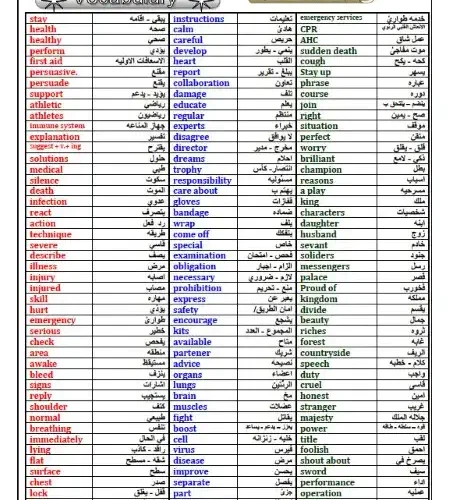 Vocabulary
stay يبقى - اقامه instructions تعليمات emergency services خدمه طوارئ
health صحه calm هادئ CPR
healthy صحي careful حريص AHC عمل شاق
perform يؤدي develop ينمى - يطور sudden death موت مفاجئ
first aid الاسعافات الاوليه heart القلب cough كحه - يكح
persuasive. مقنع report يبلغ - تقرير Stay up يسهر
persuade يقنع collaboration تعاون phrase عباره
support يؤيد - يدعم damage تلف course دوره
athletic رياضي educate يعلم join ينضم - يلتحق ب
athletes رياضيون regular منتظم right صح - يمين
immune system جهاز المناعه experts خبراء situation موقف
explanation تفسير disagree لا يوافق perfect متقن
suggest + v.+ ing يقترح director مخرج - مدير worry قلق - يقلق
solutions حلول dreams احلام brilliant ذكى - لامع
medical طبي trophy انتصار - كأس champion بطل
silence سكوت responsibility مسئوليه reasons اسباب
death الموت care about يهتم ب a play مسرحيه
infection عدوي gloves قفازات king ملك
react يتصرف bandage ضماده characters شخصيات
action رد فعل wrap يلف daughter ابنه
technique طريقه come off يتفكك husband زوج
severe قاسي special خاص sevant خادم
describe يصف examination فحص - امتحان soldiers جنود
illness مرض obligation الزام - اجبار messengers رسل
injury اصابه necessary لازم - ضروري palace قصر
injured مصاب prohibition منع - تحريم Proud of فخورب
skill مهاره express يعبر عن kingdom مملكه
hurt يؤذي safety امان الطريق/ divide يقسم
emergency طوارئ encourage يشجع beauty جمال
serious خطير kits المجموع - العدد riches ثروه
check يفحص available متاح forest غابه
area منطقه partener شريك countryside الريف
awake مستيقظ advice نصيحه speech كلام - خطبه
bleed ينزف organs اعضاء duty واجب
signs اشارات lungs الرئتين cruel قاسي
reply يستجيب brain مخ honest امين
shoulder كتف muscles عضلات stranger غريب
normal طبيعي fight يقاتل majesty جلاله الملك
breathing تنفس boost يعزز - يدعم - يساعد power قوه - سلطه - طاقه
immediately في الحال cell خليه - زنزانه title لقب
lying راقد - كاذب virus فيرس foolish احمق
flat شقه - مسطح disease مرض shout about يصرخ في
surface سطح improve يحسن sword سيف
chest صدر separate يفصل performance اداء
lock قفل - يغلق part جزئ operation عمليه